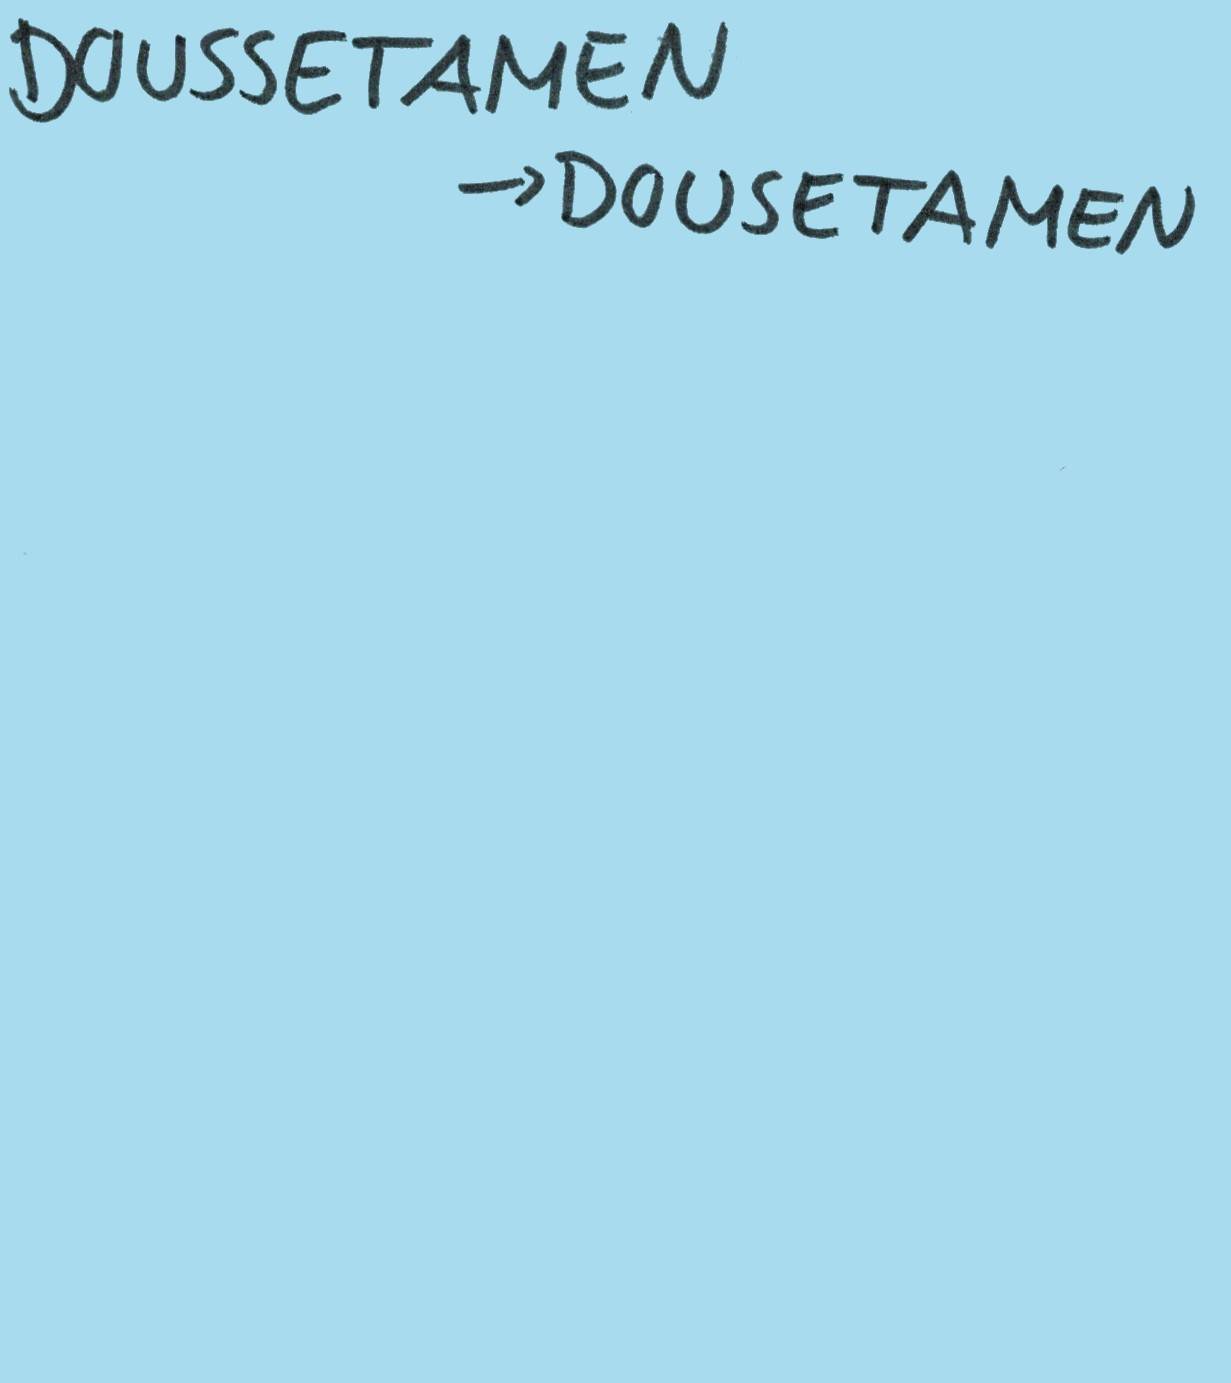 DOUSSETAMEN
→DOUSETAMEN